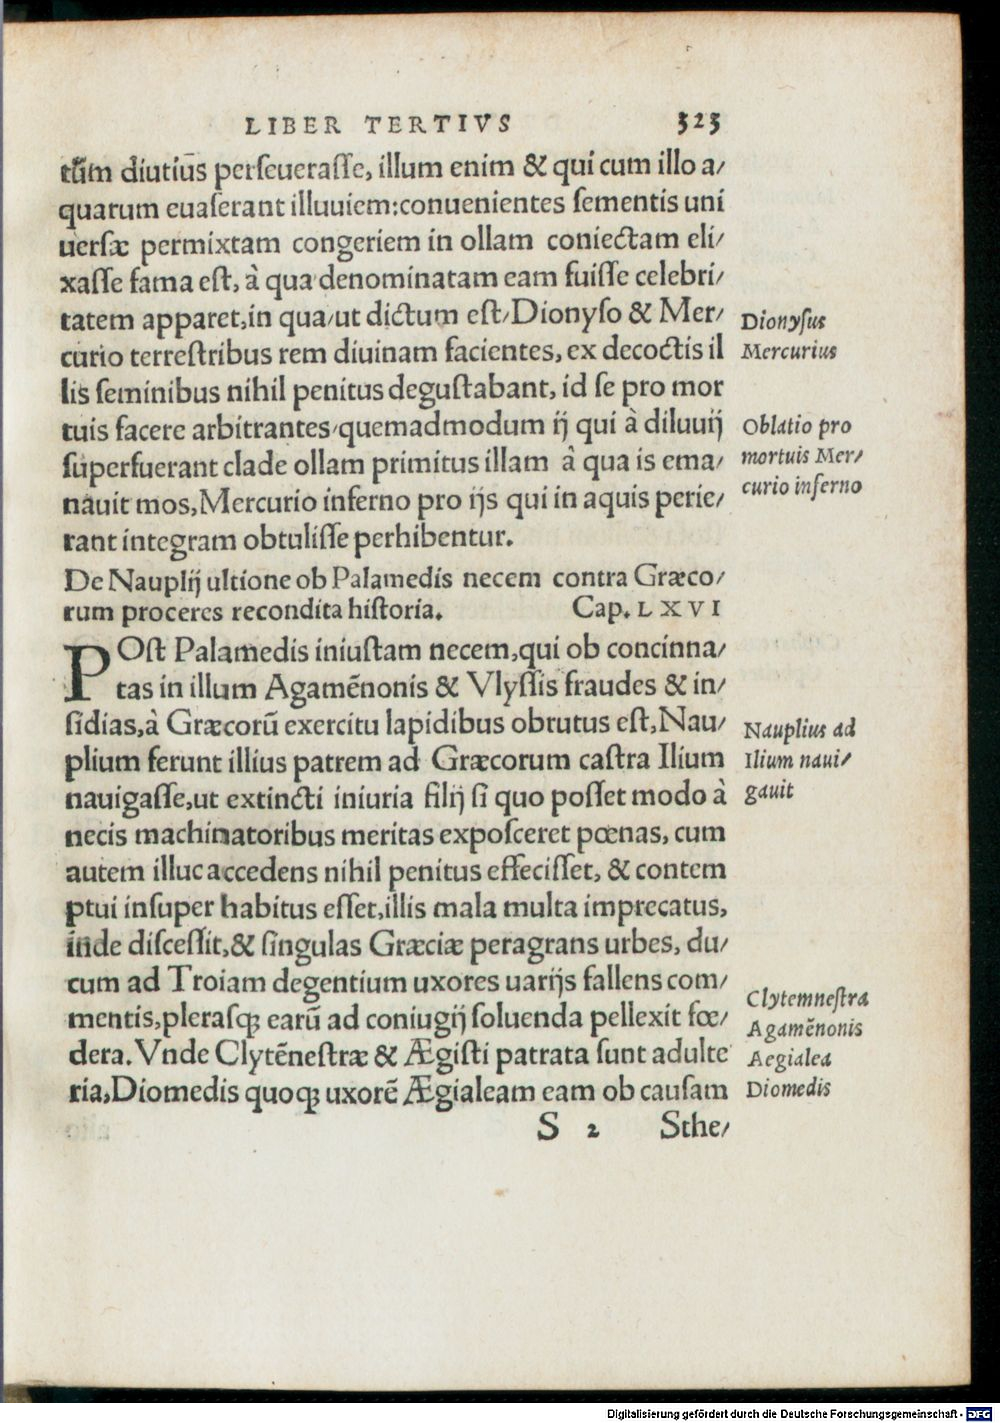 LIBER TERTIVS 323
tũm diutiũs perſeueraſſe, illum enim & qui cum illo a/
quarum euaſerant illuuiem: conuenientes ſementis uni
uerſæ permixtam congeriem in ollam coniectam eli/
xaſſe fama eſt, à qua denominatam eam fuiſſe celebri/
tatem apparet, in qua/ut dictum eſt/Dionyſo & Mer/
curio terreſtribus rem diuinam facientes, ex decoctis il
lis ſeminibus nihil penitus deguſtabant, id ſe pro mor
tuis facere arbitrantes/quemadmodum ij qui à diluuij
ſuperfuerant clade ollam primitus illam à qua is ema/
nauit mos, Mercurio inferno pro ijs qui in aquis perie/
rant integram obtuliſſe perhibentur.
Dionyſus
Mercurius
Oblatio pro
mortuis Mer/
curio inferno
De Nauplij ultione ob Palamedis necem contra Græco/
rum proceres recondita hiſtoria. Cap. LXVI
POſt Palamedis iniuſtam necem, qui ob concinna/
tas in illum Agamẽnonis & Vlyſſis fraudes & in/
ſidias, à Græcorũ exercitu lapidibus obrutus eſt, Nau/
plium ferunt illius patrem ad Græcorum caſtra Ilium
nauigaſſe, ut extincti iniuria filij ſi quo poſſet modo à
necis machinatoribus meritas expoſceret pœnas, cum
autem illuc accedens nihil penitus effeciſſet, & contem
ptui inſuper habitus eſſet, illis mala multa imprecatus,
inde diſceſſit, & ſingulas Græciæ peragrans urbes, du/
cum ad Troiam degentium uxores uarijs fallens com/
mentis, pleraſq; earũ ad coniugij ſoluenda pellexit fœ/
dera. Vnde Clytẽneſtræ & Ægiſti patrata ſunt adulte
ria, Diomedis quoq; uxorẽ Ægialeam eam ob cauſam
Nauplius ad
Ilium naui/
gauit
Clytemneſtra
Agamẽnonis
Aegialea
Diomedis
S 2 Sthe/
Digitalisierung gefördert durch die Deutsche Forschungsgemeinschaft - DFG